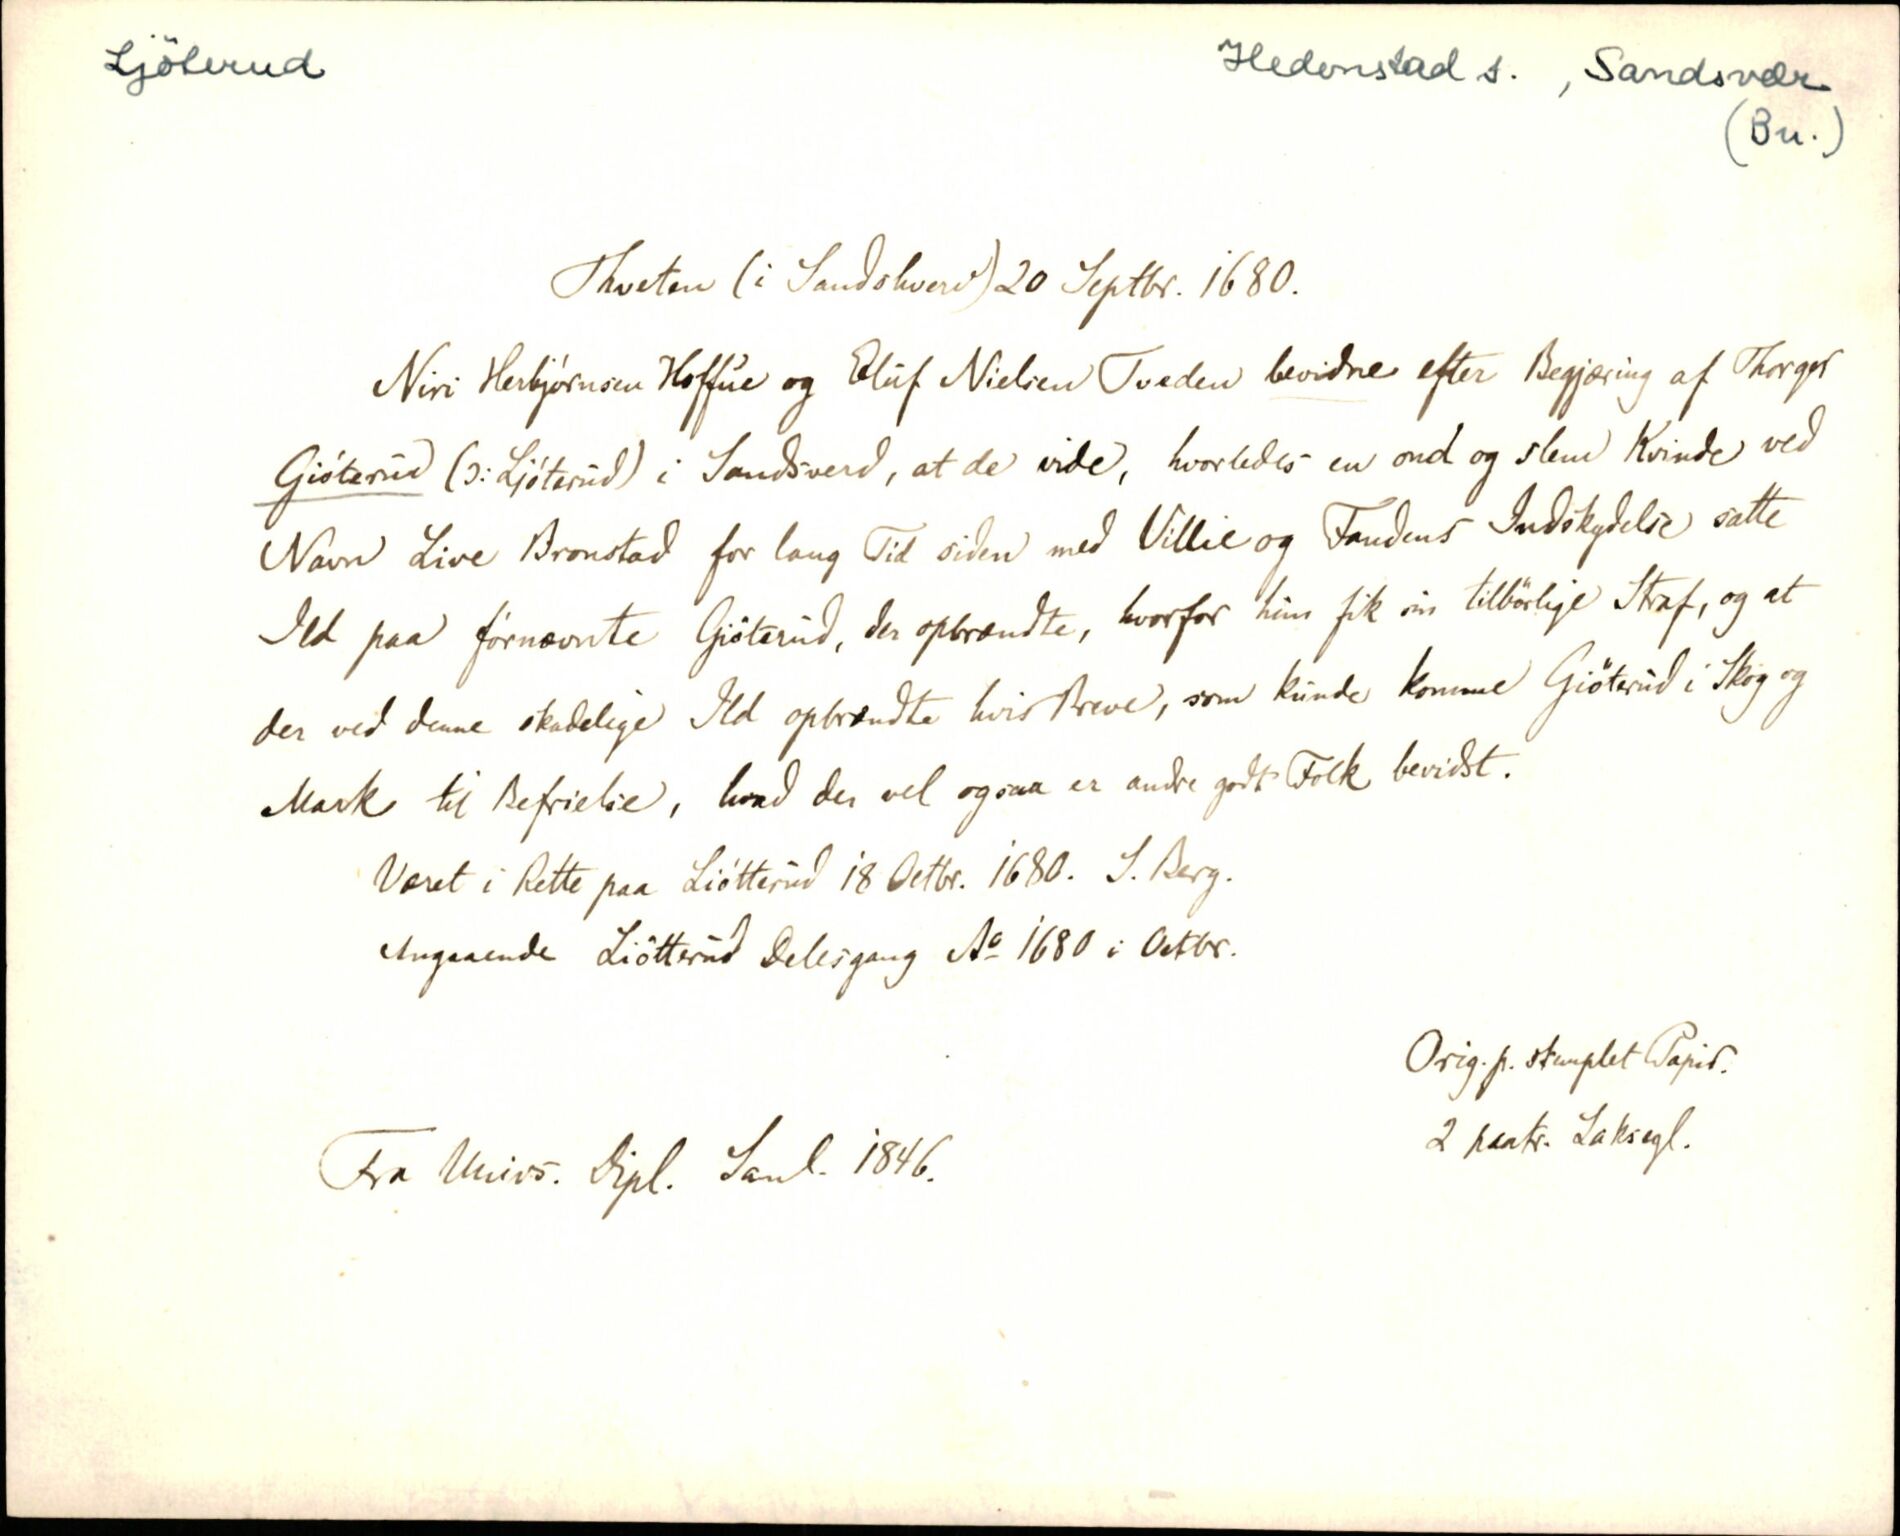 Ljöterud
Hedenstad s. , Sandsvær
(Bu.)
Thveten (i Sandshverv) 20 Septbr. 1680.
Niri Herbjörnsen Hoffue og Eluf Nielsen Tveden bevidne efter Begjæring af Thorger
Giöterud (ɔ: Ljöterud) i Sandsverd, at de vide, hvorledes en ond og slem Kvinde ved
Navn Live Bronstad for lang Tid siden med Villie og Fandens Indskydelse satte
Ild paa fornævnte Giöterud, der opbrændte, hvorfor hun fik sin tilbörlige Straf, og at
der ved denne skadelige Ild opbrændte hvis Breve, som kunde komme Giöterud i Skog og
Mark til Befrielse, hvad der vel ogsaa er andre godt Folk bevidst.
Været i Rette paa Liötterud 18 Octbr. 1680. S. Berg.
Angaaende Liötterud Delesgang Aº 1680 i Octbr.
Orig. p. stemplet Papir.
2 paatr. Laksegl.
Fra Univs. Dipl. Saml. 1846.